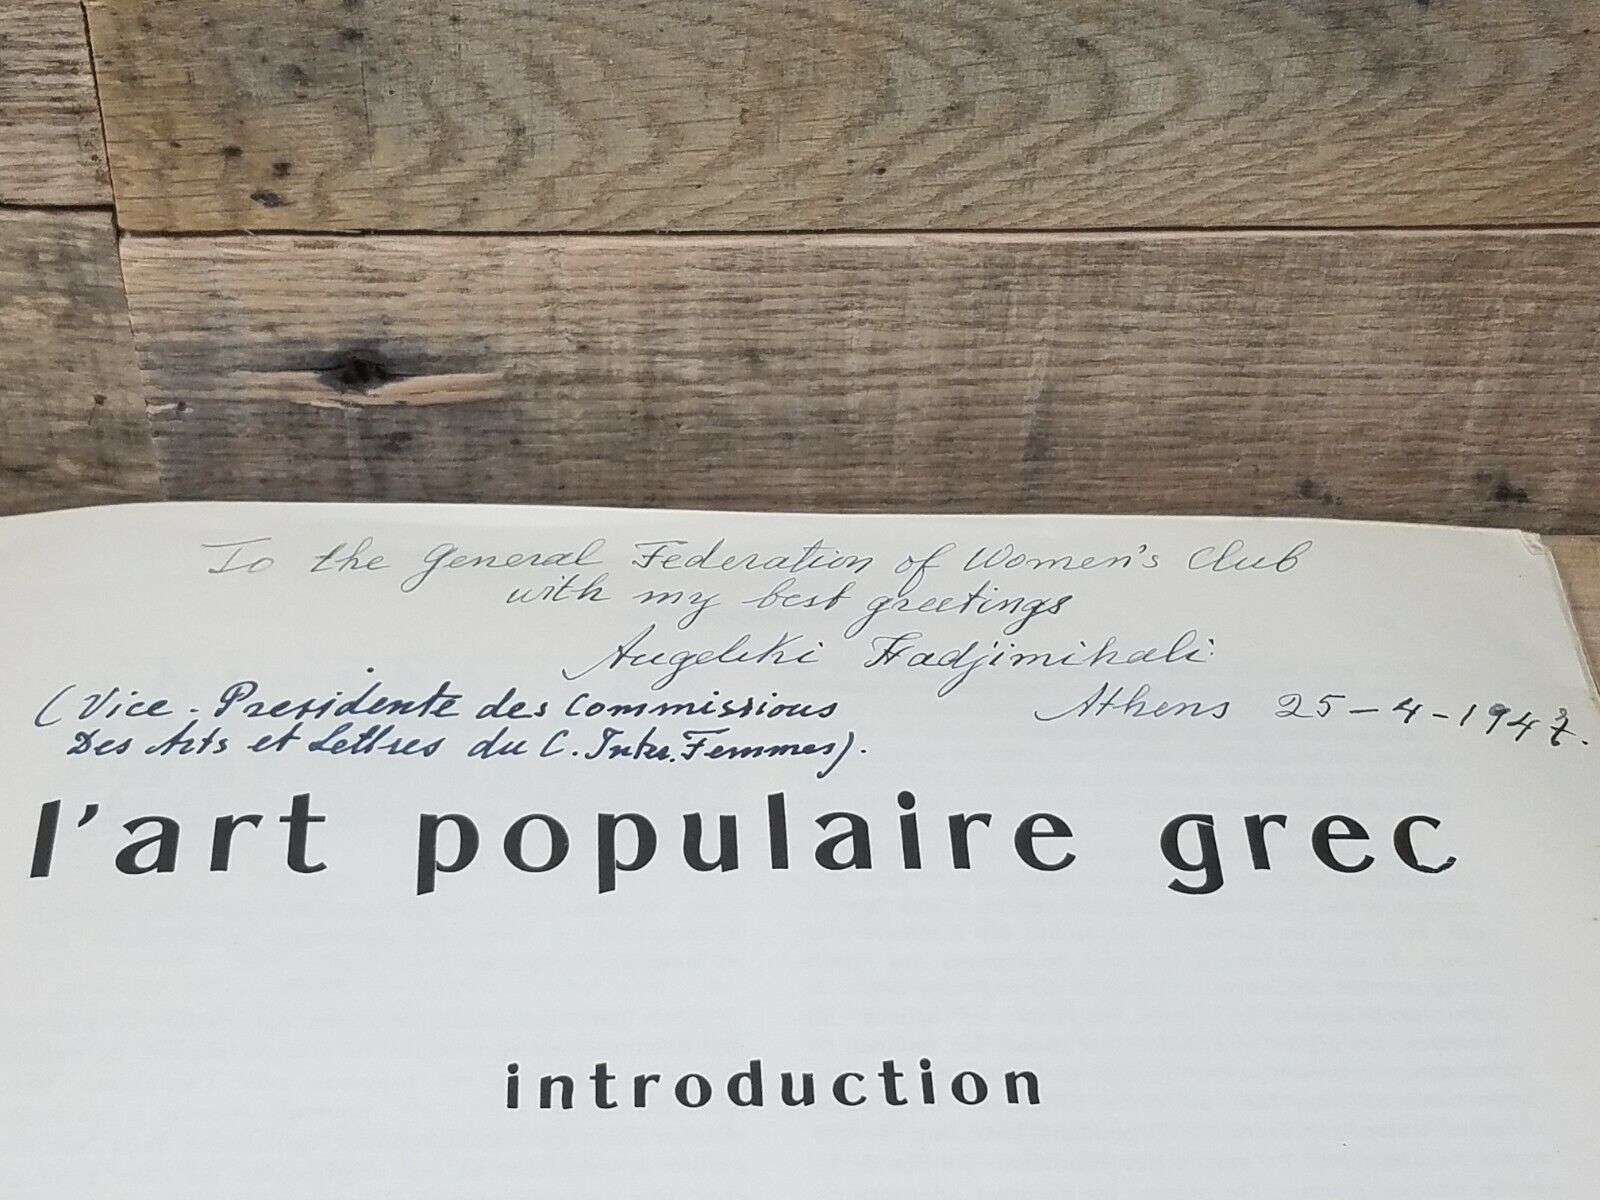 To the General Federation of Women's Club
with my best greetings
Angeliki Hadjimihali
(Vice-Presidente des Commissions
Athens 25-4-1947.
Des Arts et Lettres du C. Inter. Femmes).
l'art populaire grec
introduction